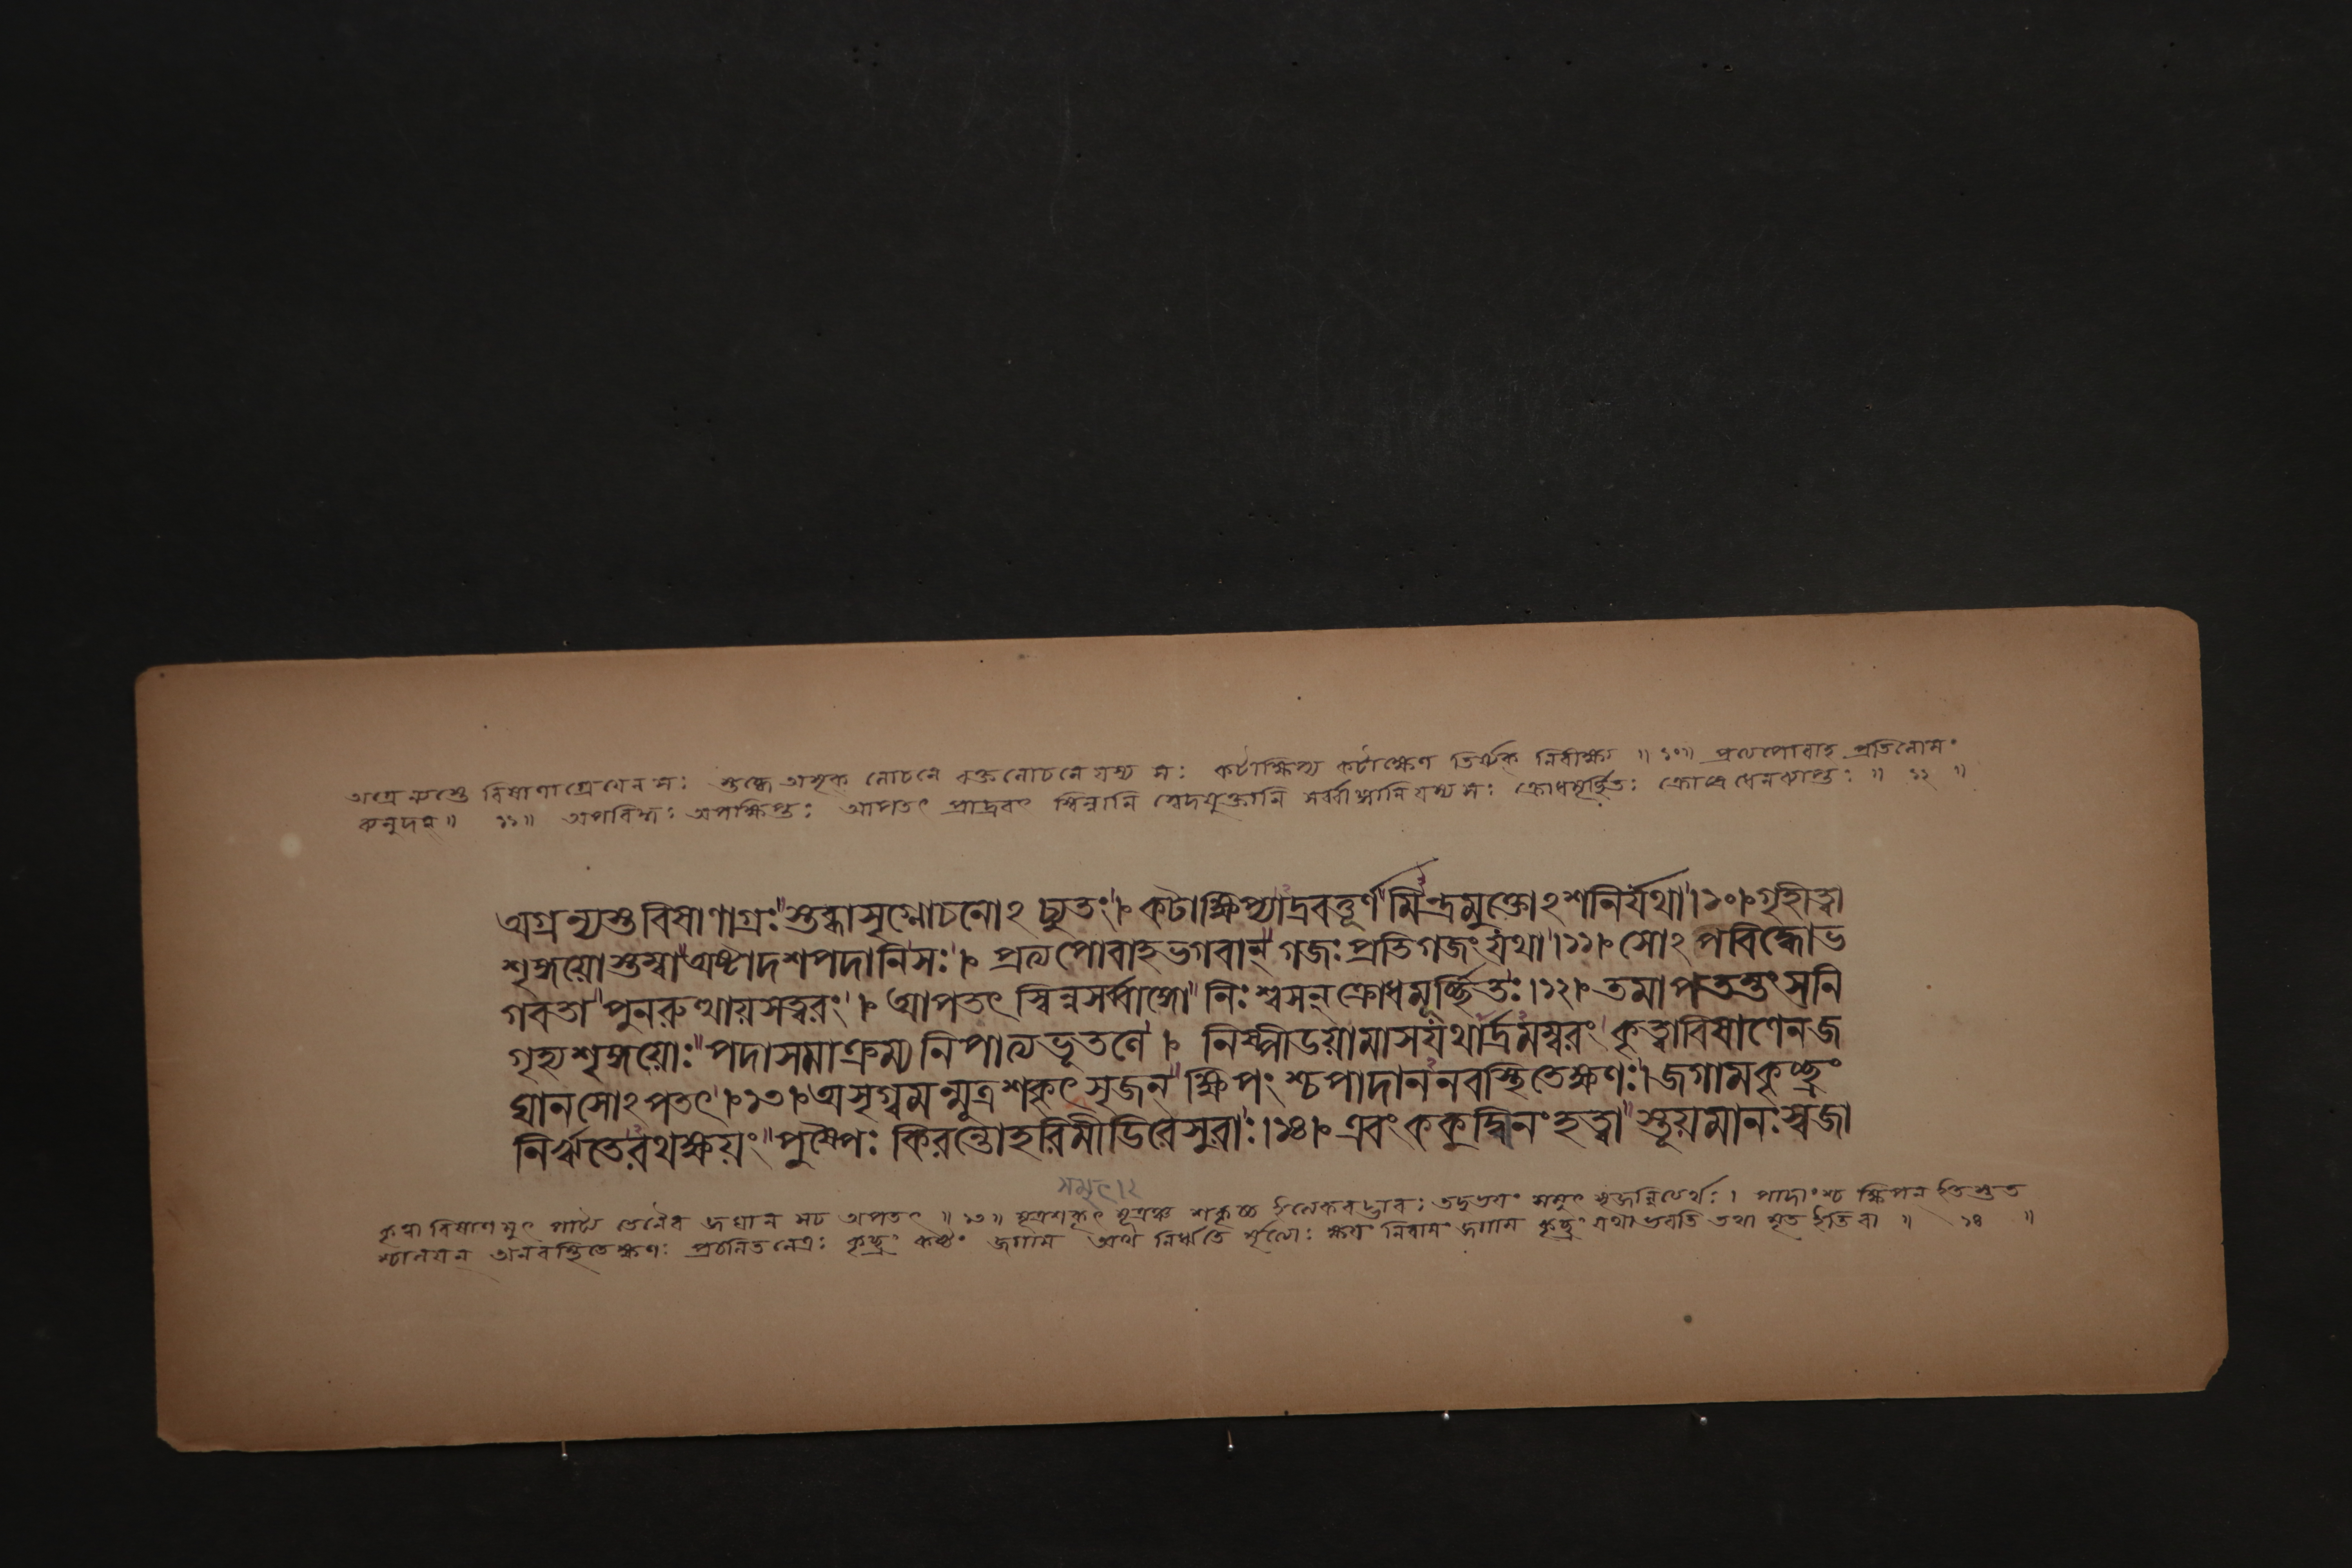 অগ্রে ন্যস্তে বিষাণাগ্রে যেন সঃ স্তব্ধে অসৃক্ লোচনে রক্তলোচনে যস্য সঃ কটাক্ষিপ্য কটাক্ষেণ তির্য্যক্ নিরীক্ষ্য ॥ ১০॥ প্রত্যপোবাহ প্রতিলোমং
॥ ১১॥ অপবিদ্ধঃ অপক্ষিপ্তঃ আপতৎ প্রাদ্রবৎ স্বিন্নানি স্বেদযুক্তানি সর্ব্বাঙ্গানি যস্য সঃ ক্রোধমূর্চ্ছিতঃ ক্রোধেন ব্যাপ্তঃ ॥ ১২ ॥
অগ্রন্যস্তবিষাণাগ্রঃ॥স্তব্ধাসৃগ্লোচনোঽচ্যুতং।৮ কটাক্ষিপ্যাদ্রবত্তূর্ণ॥মিন্দ্রমুক্তোঽশনির্যথা।১০।৮ গৃহীত্বা
শৃঙ্গয়োস্তম্বা॥অষ্টাদশপদানিসঃ।৮ প্রত্যপোবাহভগবান্॥গজঃপ্রতিগজংযথা।১১।৮ সোঽপবিদ্ধোভ
গবতা॥পুনরুত্থায়সত্বরং।৮ আপতৎস্বিন্নসর্ব্বাঙ্গো॥নিঃশ্বসন্ক্রোধমূর্চ্ছিতঃ।১২।৮ তমাপতন্তংসনি
গৃহ্যশৃঙ্গয়োঃ॥পদাসমাক্রম্যনিপাত্যভূতলে।৮ নিষ্পীডয়ামাসযথার্দ্রমম্বরং॥কৃত্বাবিষাণেনজ
ঘানসোঽপতৎ।৮১৩।৮অসৃগ্বমন্মূত্রশকৃৎসৃজন্॥ক্ষিপংশ্চপাদাননবস্থিতেক্ষণঃ।জগামকৃচ্ছ্রং
নির্ঋতেরথক্ষয়ং॥পুষ্পৈঃকিরন্তোহরিমীডিরেসুরাঃ।১৪।৮এবংককুদ্মিনংহত্বা॥স্তূয়মানঃস্বজা
সমুৎ।২
কৃত্বা বিষাণমুৎপাট্য তেনৈব জঘান সচ অপতৎ ॥ ১৩॥ মূত্রশকৃৎ মূত্রঞ্চ শকৃচ্চ সমুৎ সৃজন্নিত্যর্থঃ। পাদাংশ্চ ক্ষিপন্ ইতস্তত
শ্চালয়ন্ অনবস্থিতেক্ষণঃ প্রচলিতনেত্রঃ কৃচ্ছ্রং কষ্টং জগাম অথ নির্ঋতে র্মৃত্যোঃ ক্ষয়ং নিবাসং জগাম কৃচ্ছ্রং যথা ভবতি তথা মৃত ইতি বা ॥ ১৪ ॥